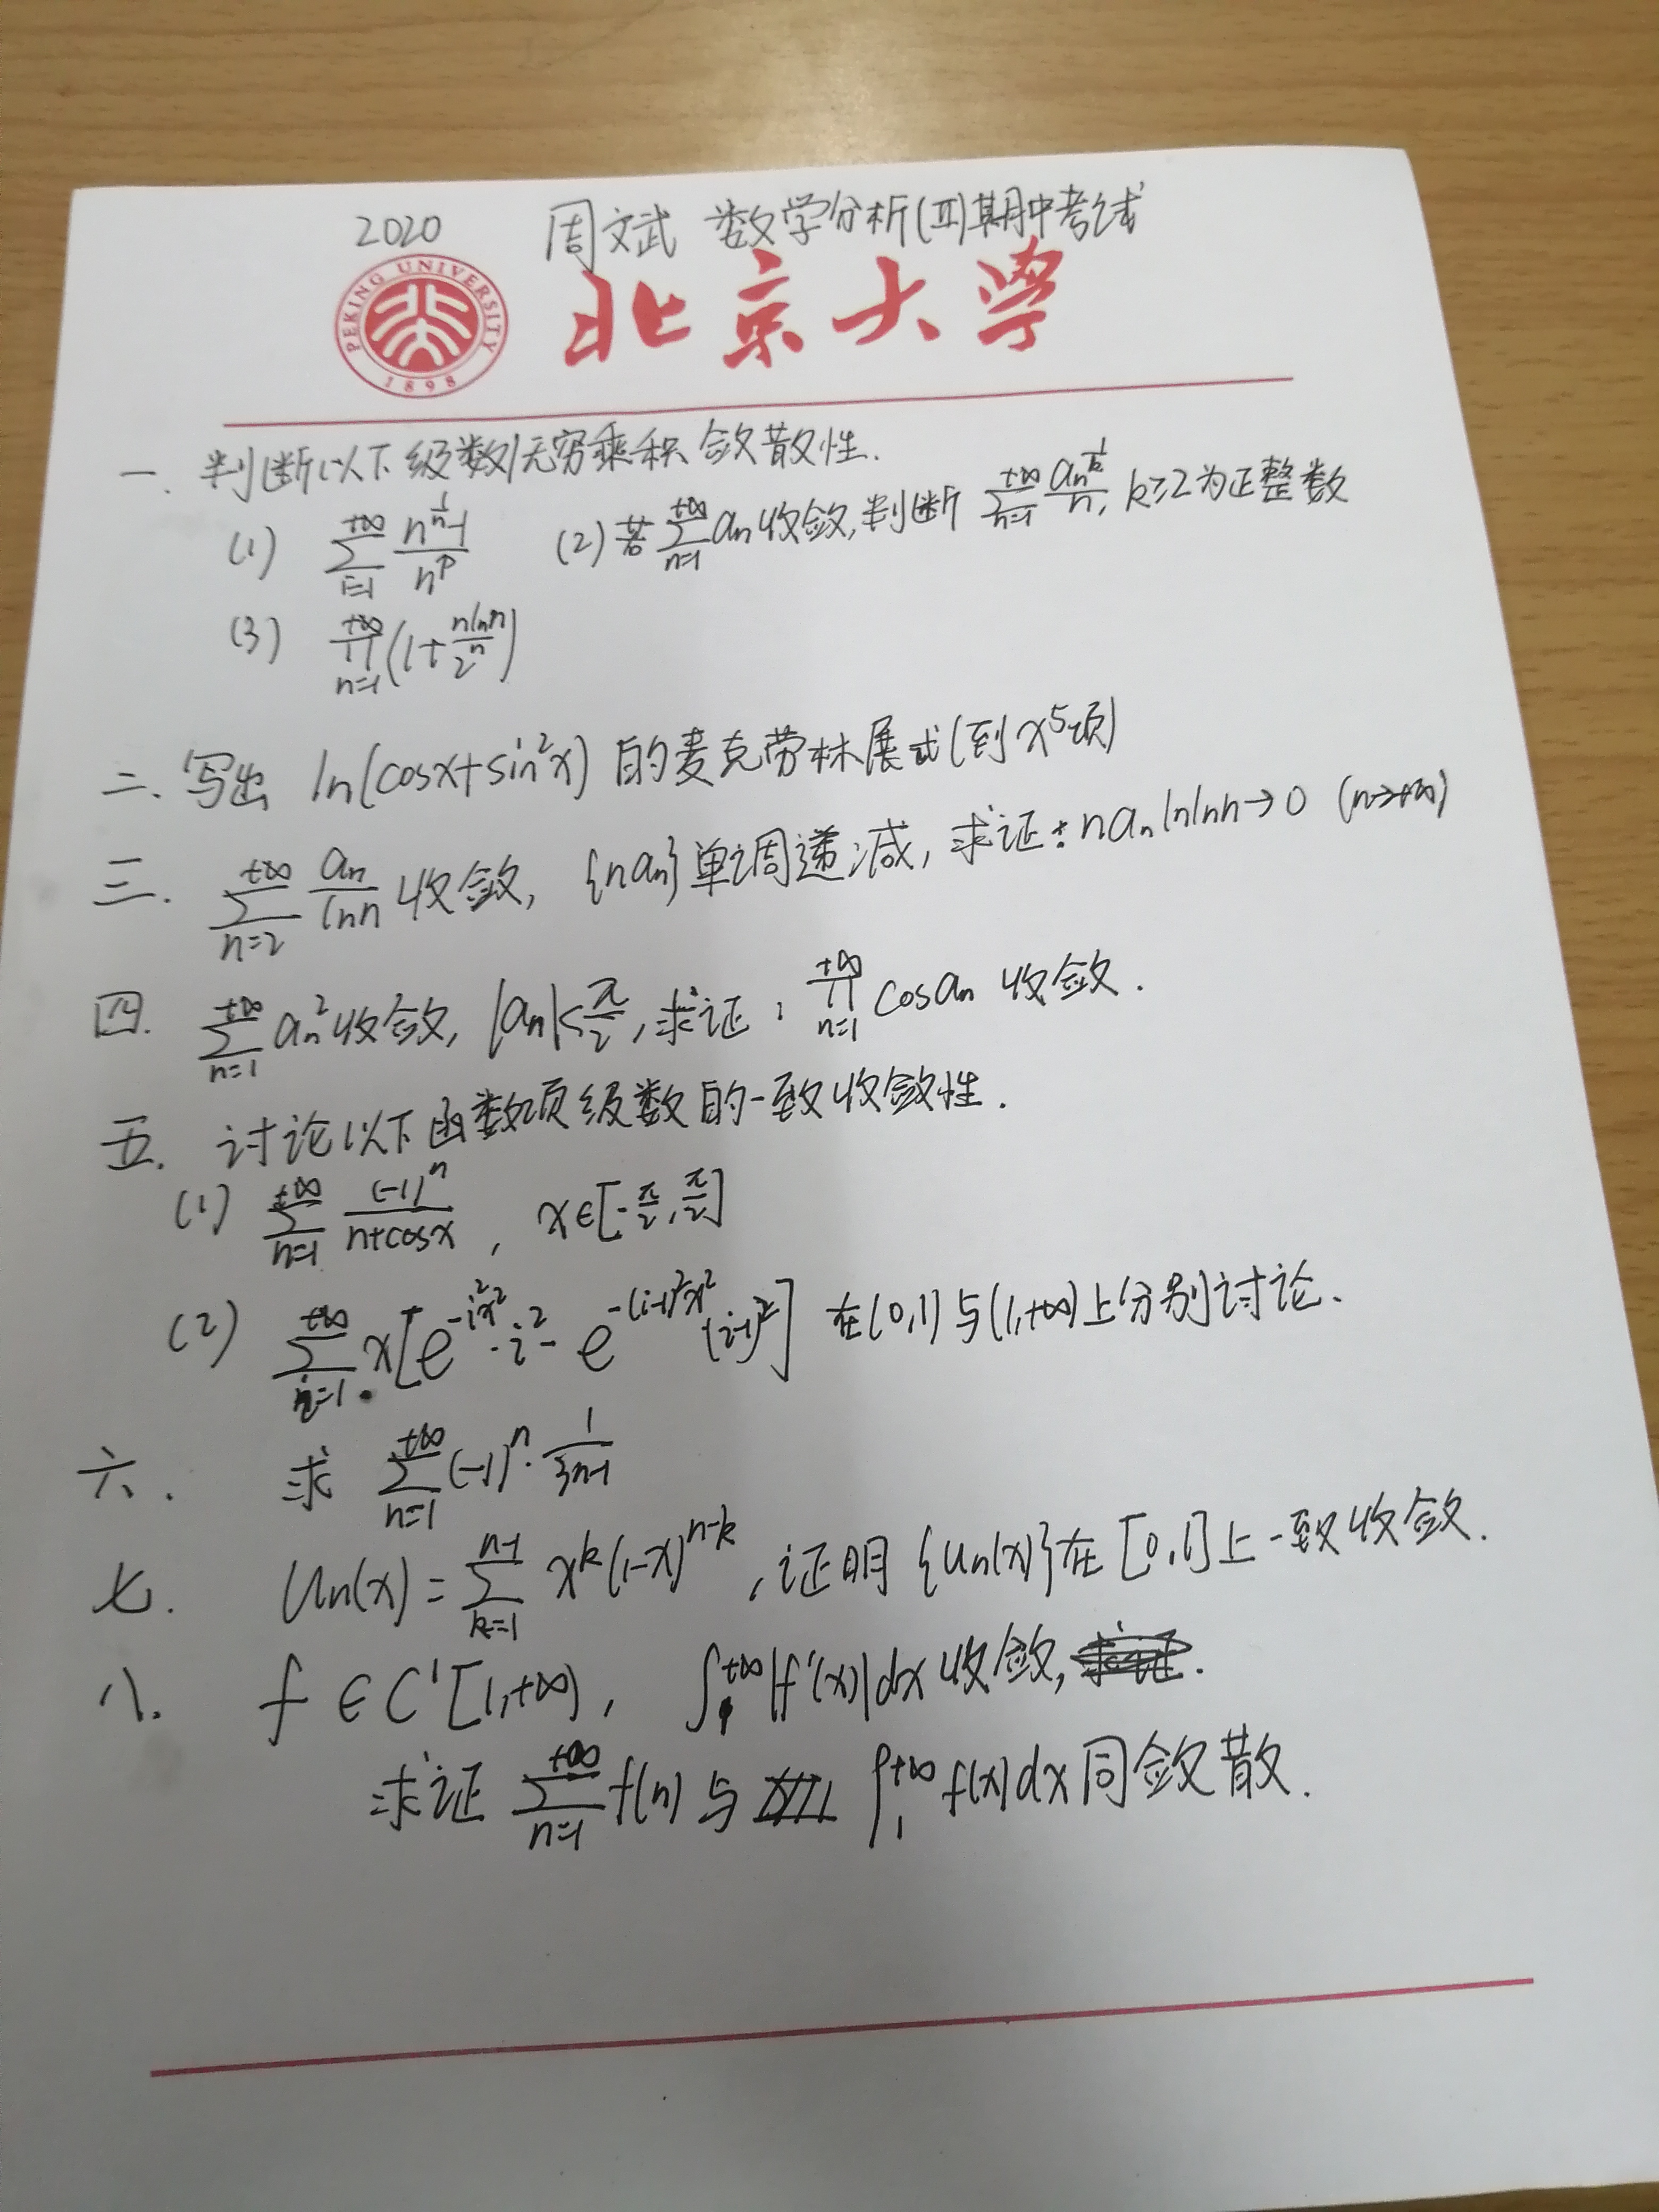 2020 周文武 数学分析(Ⅲ)期中考试
PEKING UNIVERSITY 1898
北京大学
一. 判断以下级数/无穷乘积敛散性.
(1) $\sum_{i=1}^{+\infty} \frac{n^{\frac{1}{n}}-1}{n^p}$ (2) 若 $\sum_{n=1}^{+\infty} a_n$ 收敛, 判断 $\sum_{n=1}^{+\infty} \frac{a_n^{\frac{1}{k}}}{n}$, k≥2为正整数
(3) $\prod_{n=1}^{+\infty} (1+\frac{n^{\ln n}}{2^n})$
二. 写出 $\ln(\cos x+\sin^2 x)$ 的麦克劳林展式(到 $x^5$ 项)
三. $\sum_{n=2}^{+\infty} \frac{a_n}{\ln n}$ 收敛, $\{na_n\}$ 单调递减, 求证: $na_n \ln\ln n \to 0$ $(n\to+\infty)$
四. $\sum_{n=1}^{+\infty} a_n^2$ 收敛, $|a_n|<\frac{\pi}{2}$, 求证: $\prod_{n=1}^{+\infty} \cos a_n$ 收敛.
五. 讨论以下函数项级数的一致收敛性.
(1) $\sum_{n=1}^{+\infty} \frac{(-1)^n}{n+\cos x}$, $x\in[-\frac{\pi}{2},\frac{\pi}{2}]$
(2) $\sum_{i=1}^{+\infty} x[e^{-i^2x^2}\cdot i^2 - e^{-(i-1)^2x^2}(i-1)^2]$ 在(0,1)与(1,+∞)上分别讨论.
六. 求 $\sum_{n=1}^{+\infty} (-1)^n \cdot \frac{1}{3n-1}$
七. $U_n(x)=\sum_{k=1}^{n-1} x^k(1-x)^{n-k}$, 证明 $\{U_n(x)\}$ 在 [0,1] 上一致收敛.
八. $f\in C^1[1,+\infty)$, $\int_1^{+\infty} |f'(x)|dx$ 收敛,
求证 $\sum_{n=1}^{+\infty} f(n)$ 与 $\int_1^{+\infty} f(x)dx$ 同敛散.